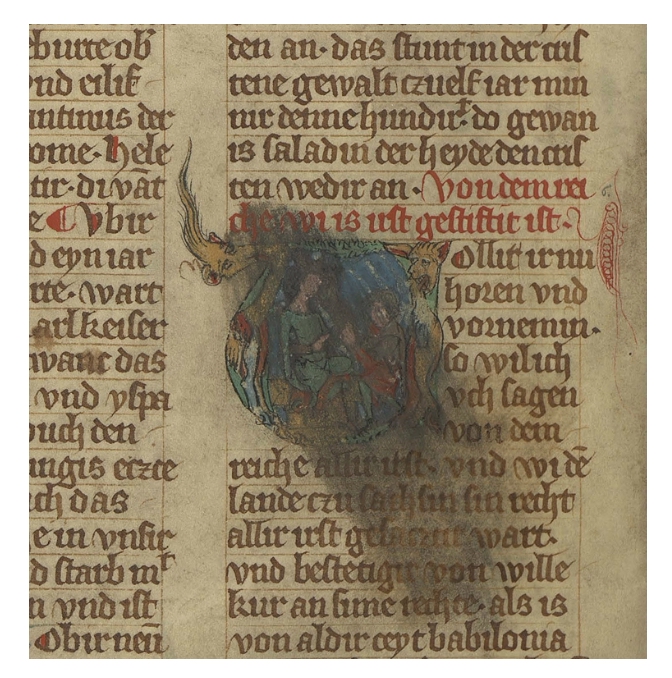 eburte ob
vnd eilif
antinus der
ome. hele
tir. di vāt
e Vbir
d eyn iar
rte. wart
arl keiser
wanc das
vnd yspa
ouch den
ungis erzte
ch das
e in vnsir
d starb in
n vnd ist
Obir nen
den an. das stunt in der cris
tene gewalt czuelf iar min
nir denne hundirt. do gewan
is saladin der heyde den cris
ten wedir an. Von dem rei
che wi is irst gestiftit ist.
Wollit ir nu
horen vnd
vornemin.
so wil ich
vch sagen
von dem
reiche allir irst. vnd wi dē
lande czu sachsin sin recht
allir irst gesaczit wart.
vnd bestetigit von wille
kur an sime rechte. als is
von aldir ceyt babilonia